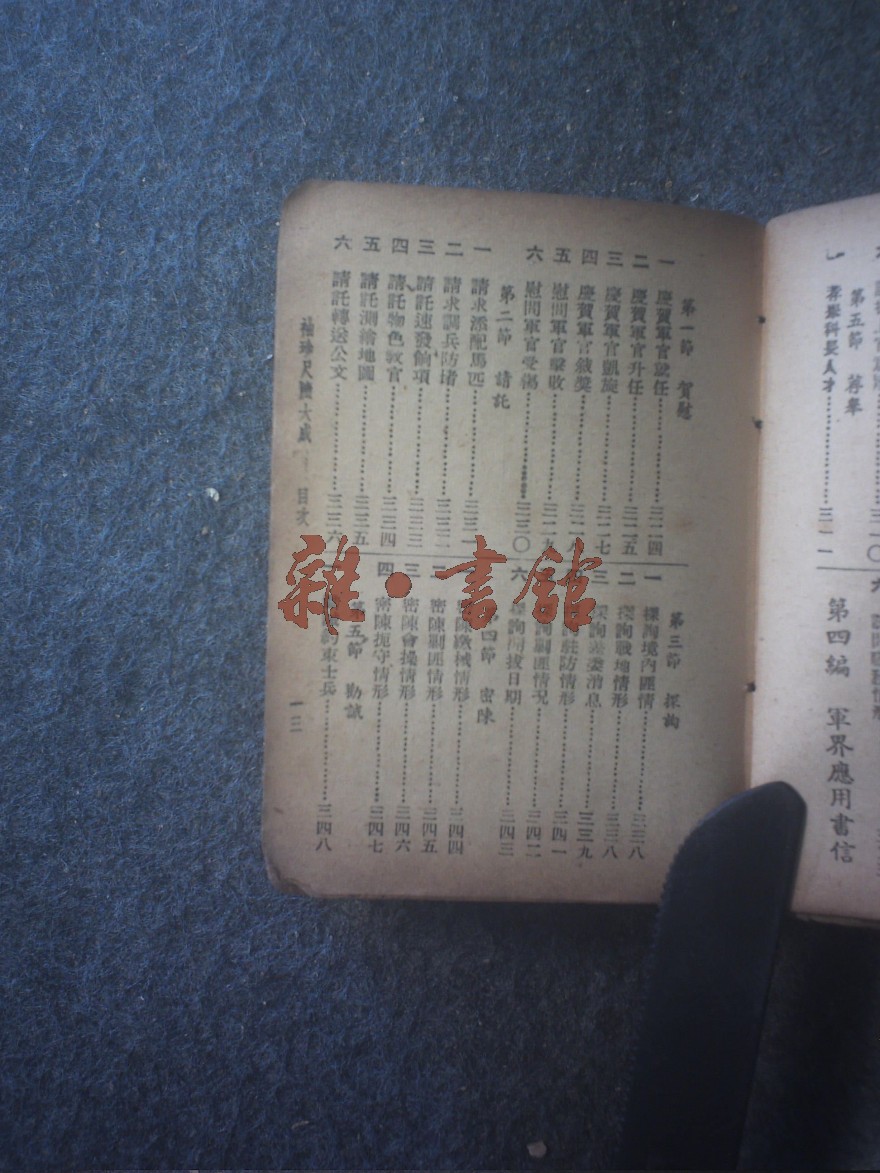 第五節 薦舉
第四編 軍界應用書信
第一節 賀慰
一 慶賀軍官就任……三二四
二 慶賀軍官升任……三二五
三 慶賀軍官凱旋……三二七
四 慶賀軍官敘獎……三二八
五 慰問軍官擊收……三二九
六 慰問軍官受傷……三三〇
第二節 請託
一 請求添配馬匹
二 請求調兵防堵
三 請託速發餉項……三三三
四 請託物色教官……三三四
五 請託測繪地圖……三三五
六 請託轉送公文……三三六
第三節 探詢
一 探詢境內匪情……三三八
二 探詢戰地情形……三三八
三 消息……三三九
駐防情形……三四一
詢剿匪情況……三四二
六 詢開拔日期……三四三
第四節 密陳
繳械情形……三四四
二 密陳剿匪情形……三四五
三 密陳會操情形……三四六
四 密陳扼守情形……三四七
第五節 勸誡
束士兵……三四八
袖珍尺牘大成 目次
一三
雜·書館